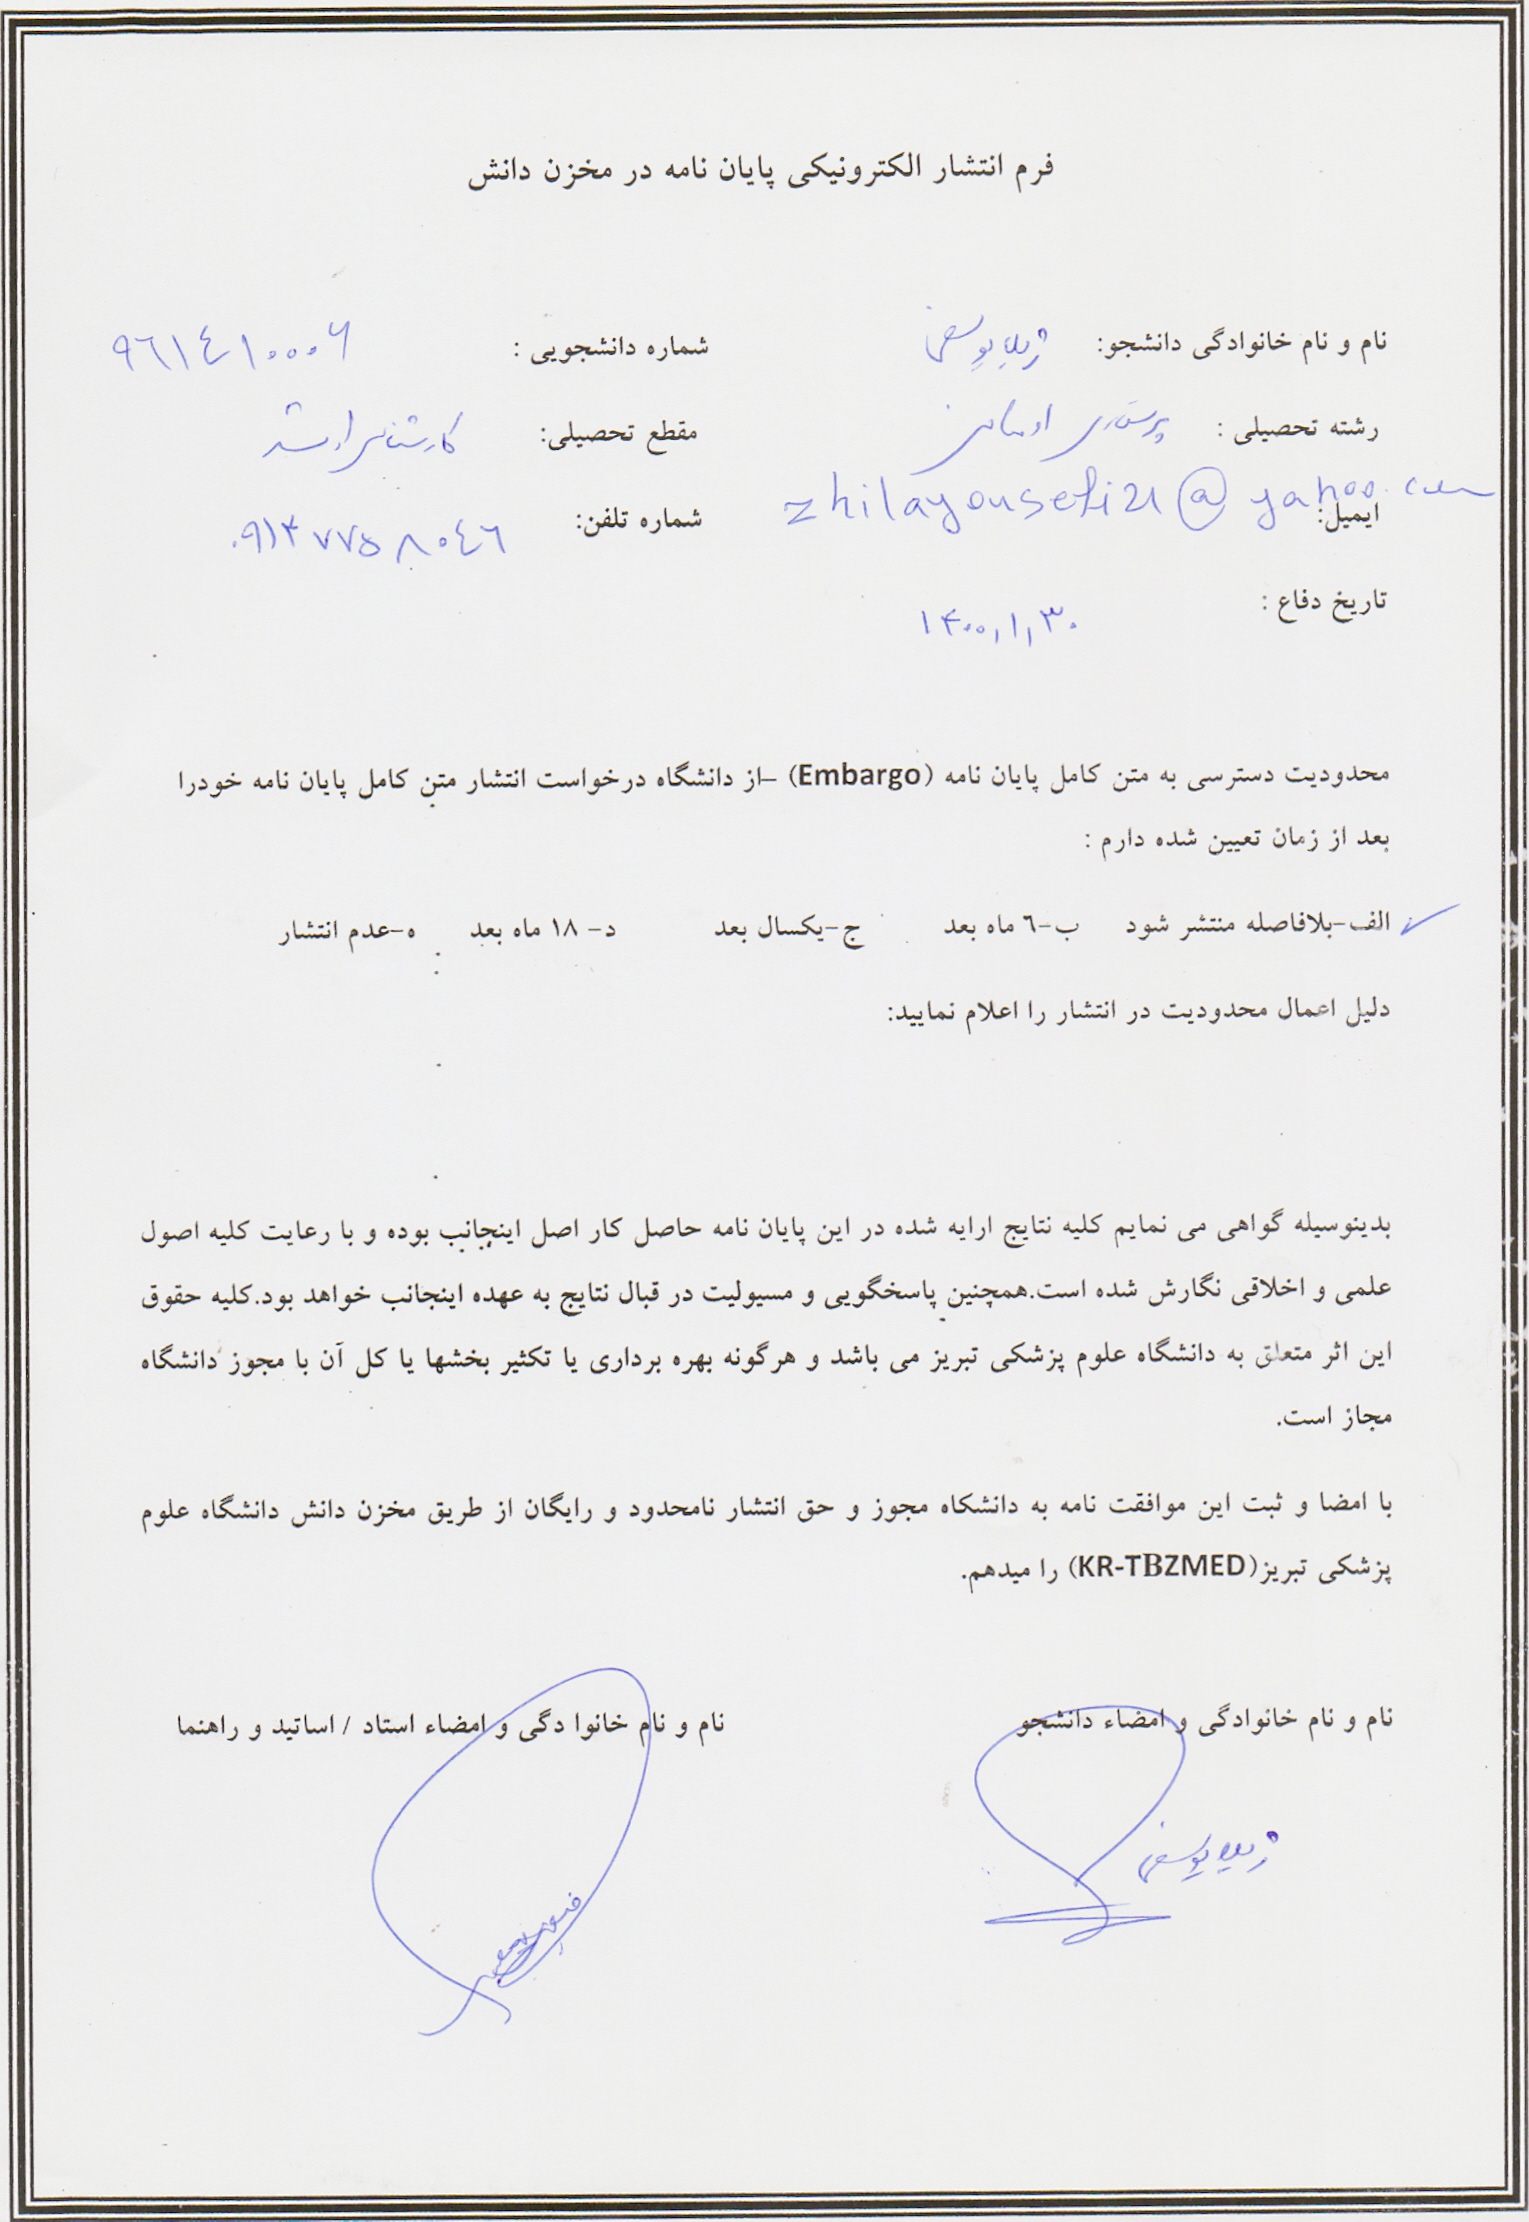 فرم انتشار الکترونیکی پایان نامه در مخزن دانش
نام و نام خانوادگی دانشجو: ژیلا یوسفی شماره دانشجویی : ٩٦١٤١٠٠٠۶
رشته تحصیلی : پرستاری اورژانس مقطع تحصیلی: کارشناسی ارشد
ایمیل: zhilayousefi21@yahoo.com شماره تلفن: ٠٩١٣٧٧٥٨٠٤٦
تاریخ دفاع : ۱۴۰۰,۱,۳۰
محدودیت دسترسی به متن کامل پایان نامه (Embargo) –از دانشگاه درخواست انتشار متن کامل پایان نامه خودرا
بعد از زمان تعیین شده دارم :
✓ الف-بلافاصله منتشر شود ب-٦ ماه بعد ج-یکسال بعد د- ۱۸ ماه بعد ه-عدم انتشار
دلیل اعمال محدودیت در انتشار را اعلام نمایید:
بدینوسیله گواهی می نمایم کلیه نتایج ارایه شده در این پایان نامه حاصل کار اصل اینجانب بوده و با رعایت کلیه اصول
علمی و اخلاقی نگارش شده است.همچنین پاسخگویی و مسیولیت در قبال نتایج به عهده اینجانب خواهد بود.کلیه حقوق
این اثر متعلق به دانشگاه علوم پزشکی تبریز می باشد و هرگونه بهره برداری یا تکثیر بخشها یا کل آن با مجوز دانشگاه
مجاز است.
با امضا و ثبت این موافقت نامه به دانشکاه مجوز و حق انتشار نامحدود و رایگان از طریق مخزن دانش دانشگاه علوم
پزشکی تبریز(KR-TBZMED) را میدهم.
نام و نام خانوادگی و امضاء دانشجو نام و نام خانوا دگی و امضاء استاد / اساتید و راهنما
ژیلا یوسفی